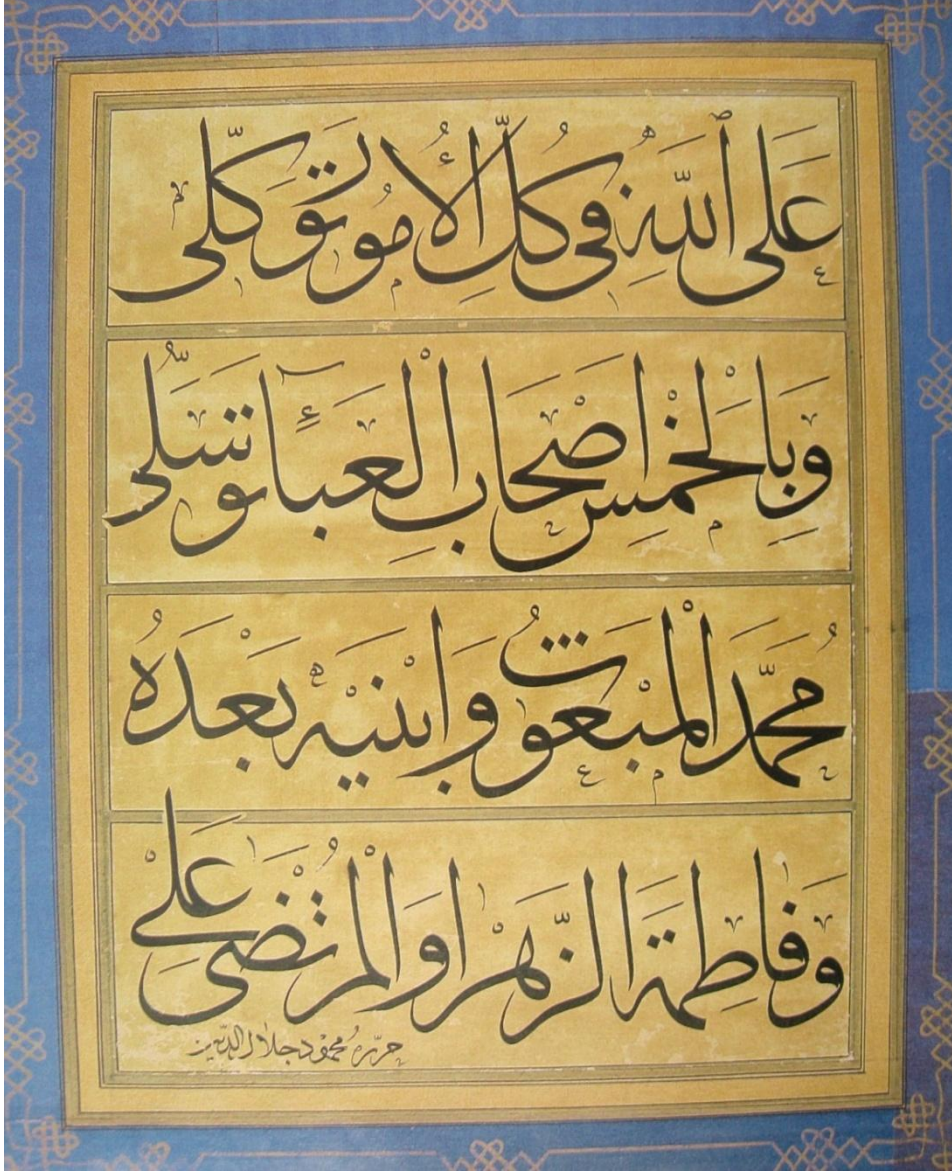 عَلَى ٱللَّهِ فِي كُلِّ الْأُمُورِ تَوَكُّلِي
وَبِالْخَمْسِ اَصْحَابِ الْعَبَاءِ تَوَسُّلِي
مُحَمَّدٍ الْمَبْعُوثُ وَابْنَيْهِ بَعْدَهُ
وَفَاطِمَةَ الزَّهْرَا وَالْمُرْتَضٰى عَلِي
حرره محمود جلال الدين